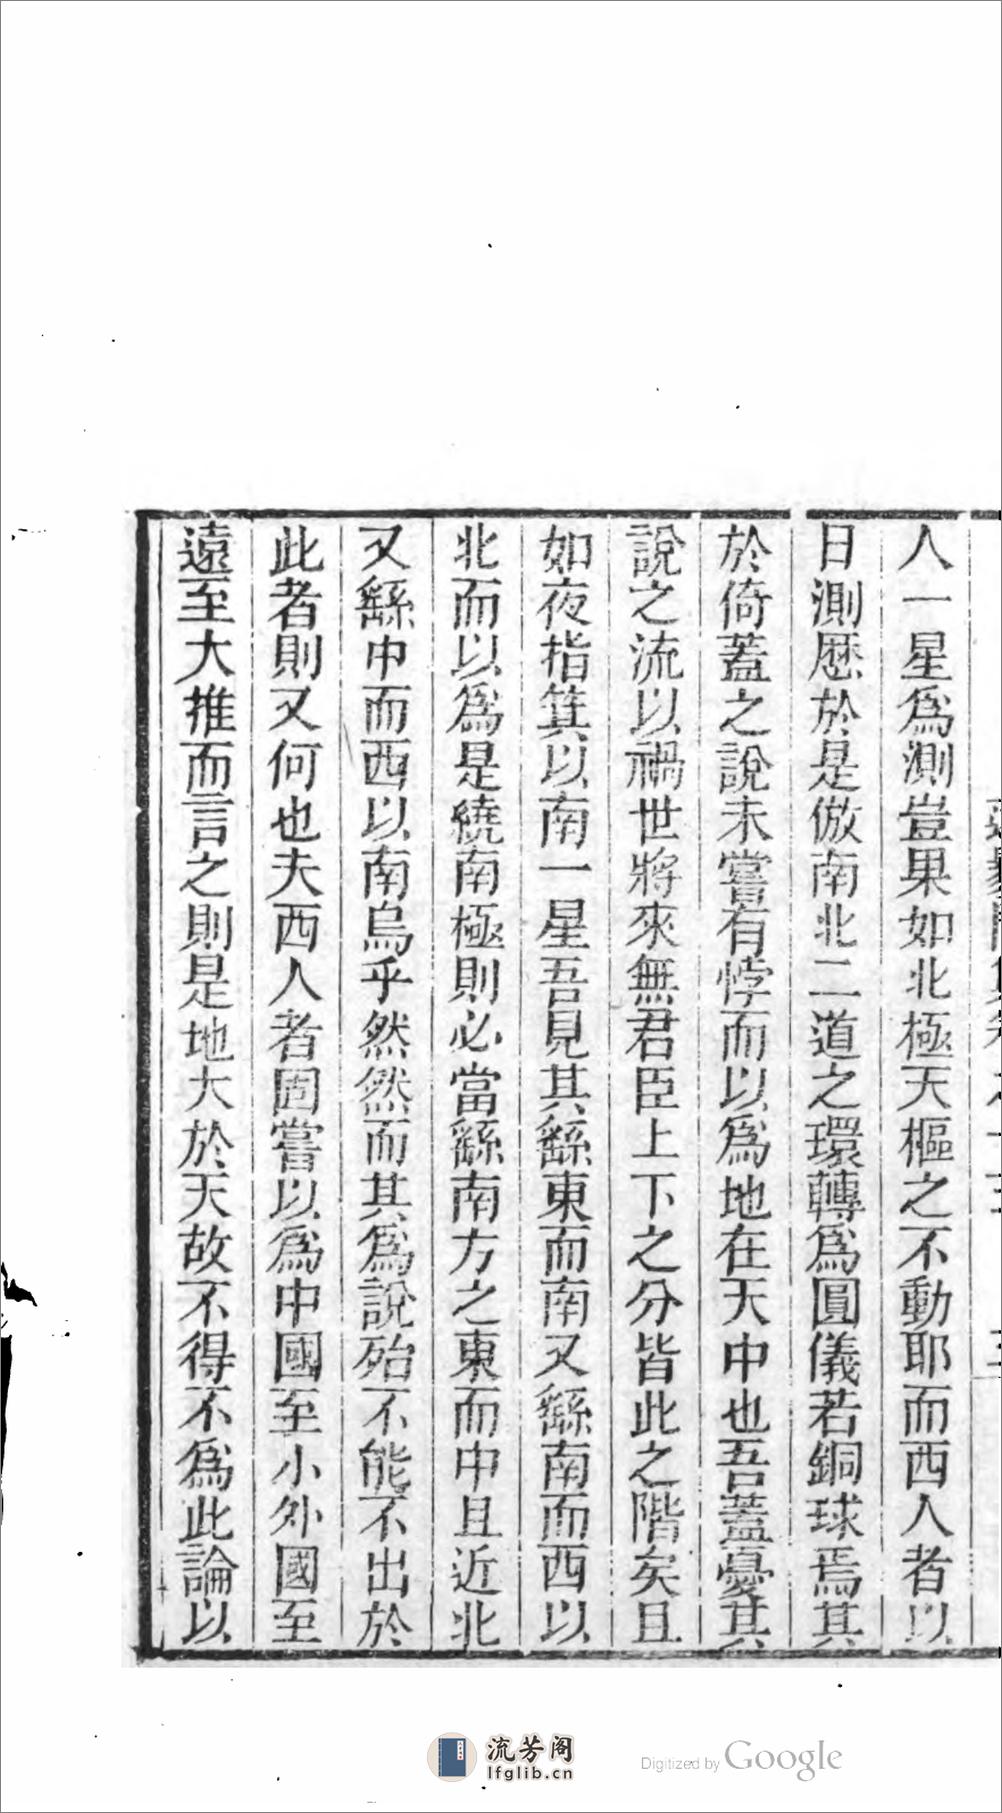 人一星爲測豈果如北極天樞之不動耶而西人者以
日測厯於是倣南北二道之環轉爲圓儀若銅球焉其
於倚蓋之說未嘗有悖而以爲地在天中也吾蓋憂其
說之流以禍世將來無君臣上下之分皆此之階矣且
如夜指箕以南一星吾見其繇東而南又繇南而西以
北而以爲是繞南極則必當繇南方之東而中且近北
又繇中而西以南烏乎然然而其爲說殆不能不出於
此者則又何也夫西人者固嘗以爲中國至小外國至
遠至大推而言之則是地大於天故不得不爲此論以
流芳阁
lfglib.cn
Digitized by Google